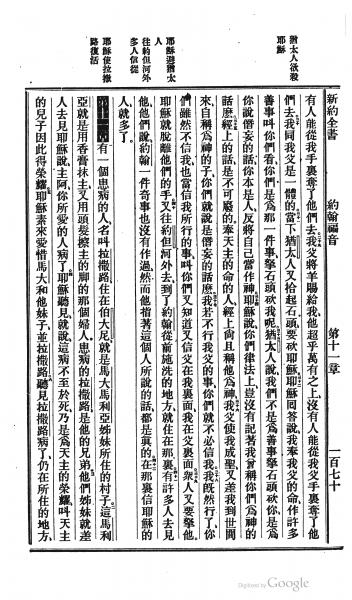 新約全書 約翰福音 第十一章 一百七十
猶太人欲殺
耶穌
耶穌避猶太
人
往約但河外
多人信從
耶穌使拉撒
路復活
有人能從我手裏奪了他們去我父將羊賜給我他超乎萬有之上沒有人能從我父手裏奪了他
們去我同我父是一體的當下猶太人又拾起石頭要砍耶穌耶穌回答說我奉我父的命作許多
善事叫你們看你們是爲那一件事拏石頭砍我呢猶太人說我們不是爲善事拏石頭砍你是爲
你說僭妄的話你本是人反將自己當作神耶穌說你們律法上豈沒有記著我曾稱你們爲神的
話麽經上的話是不可廢的奉天主的命的人經上尙且稱他爲神我父使我成聖又差我到世間
來自稱爲神的子你們就說是僭妄的話麽我若不行我父的事你們就不必信我我旣然行了你
們雖然不信我也當信我所行的事叫你們又知道又信父在我裏面我在父裏面衆人又要拏他
耶穌就脫離他們的手又往約但河外去到了約翰從前施洗的地方就住在那裏有許多人去見
他他們說約翰一件奇事也沒有作過然而他指著這個人所說的話都是眞的在那裏信耶穌的
人就多了
第十一章有一個患病的人名叫拉撒路住在伯大尼就是馬大馬利亞姊妹所住的村子這馬利
亞就是用香膏抹主又用頭髮擦主的脚的那個婦人患病的拉撒路是他的兄弟他們姊妹就差
人去見耶穌說主阿你所愛的人病了耶穌聽見就說這病不至於死乃是爲天主的榮耀叫天主
的兒子因此得榮耀耶穌素來愛惜馬大和他妹子並拉撒路聽見拉撒路病了仍在所住的地方
Digitized by Google